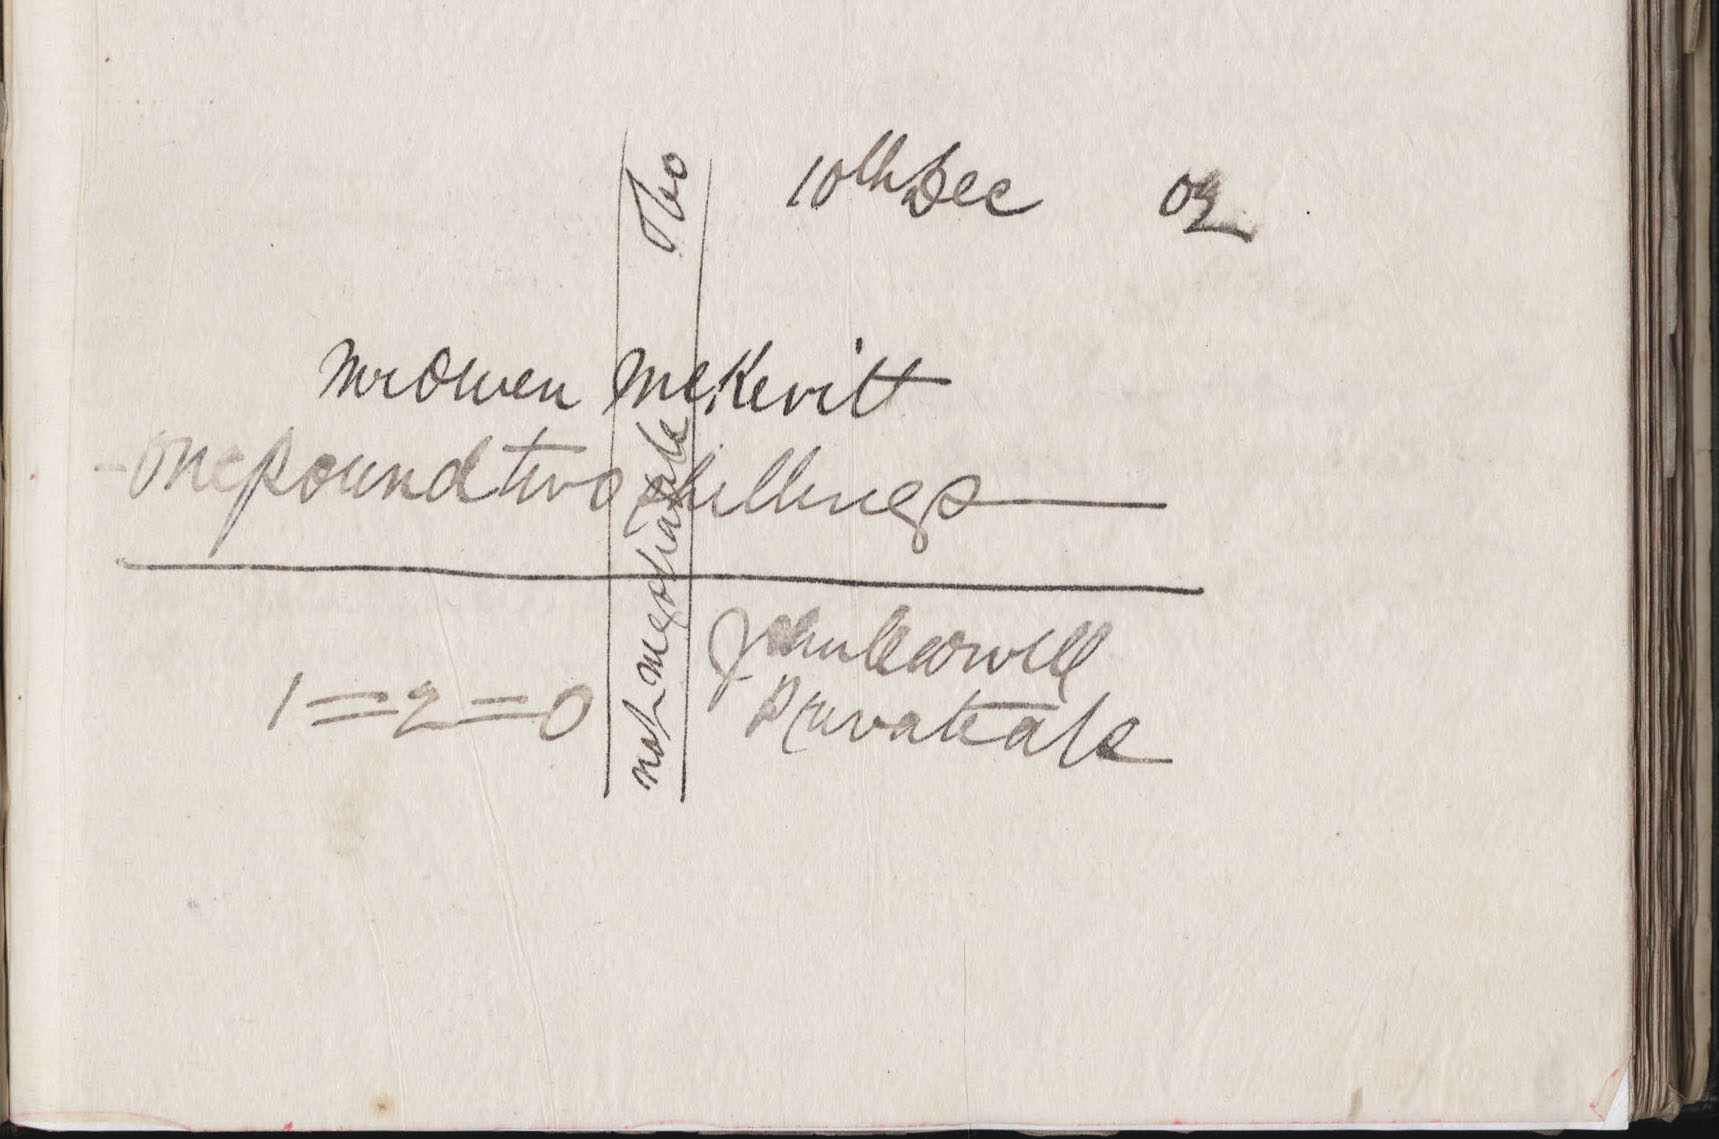 10th Dec 02
Mr Owen McKevitt
One pound two shillings
1=2=0
John
Private a/c
not negotiable &Co